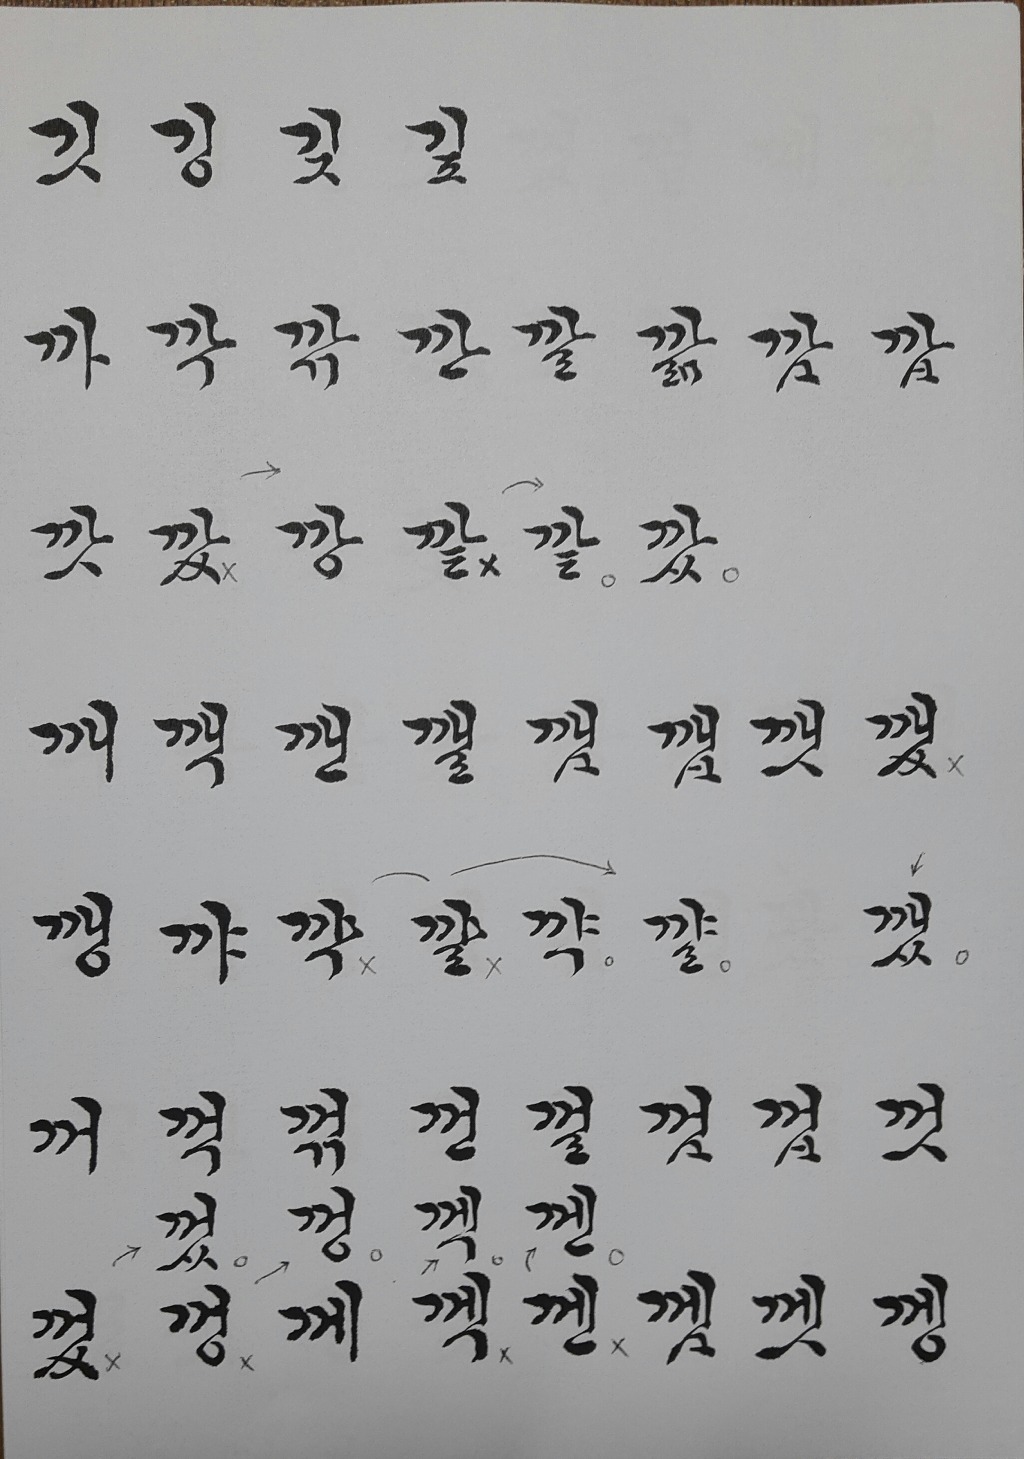 깃 깅 깆 깊
까 깍 깎 깐 깔 깖 깜 깝
깟 깠x 깡 깥x 깥o 깠o
깨 깩 깬 깰 깸 깹 깻 깼x
깽 꺄 꺅x 꺌x 꺅o 꺌o 깼o
꺼 꺽 꺾 껀 껄 껌 껍 껏
껐o 껑o 껙o 껜o
껐x 껑x 께 껙x 껜x 껨 껫 껭